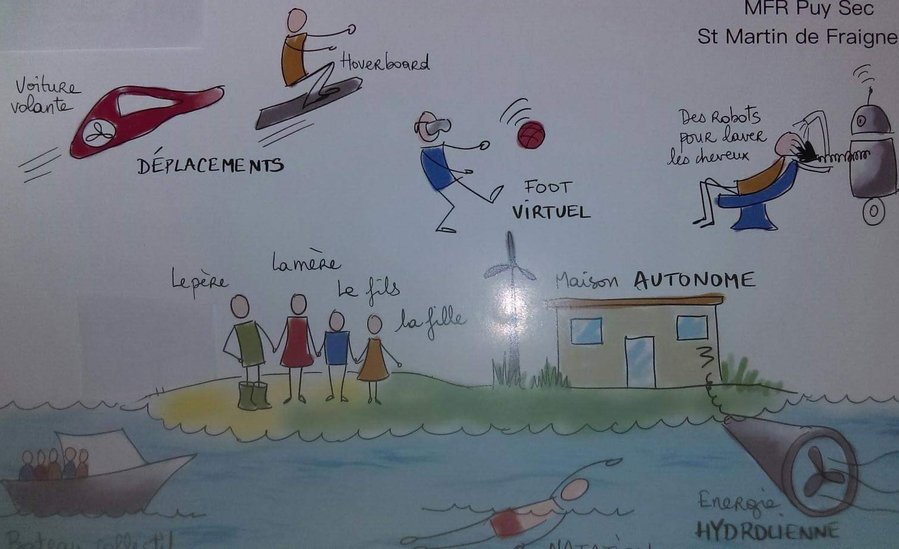 MFR Puy Sec
St Martin de Fraigne
Hoverboard
Voiture
volante
DÉPLACEMENTS
Des robots
pour laver
les cheveux
FOOT
VIRTUEL
Le père
La mère
Le fils
la fille
Maison AUTONOME
Energie
HYDROLIENNE
Bateau collectif